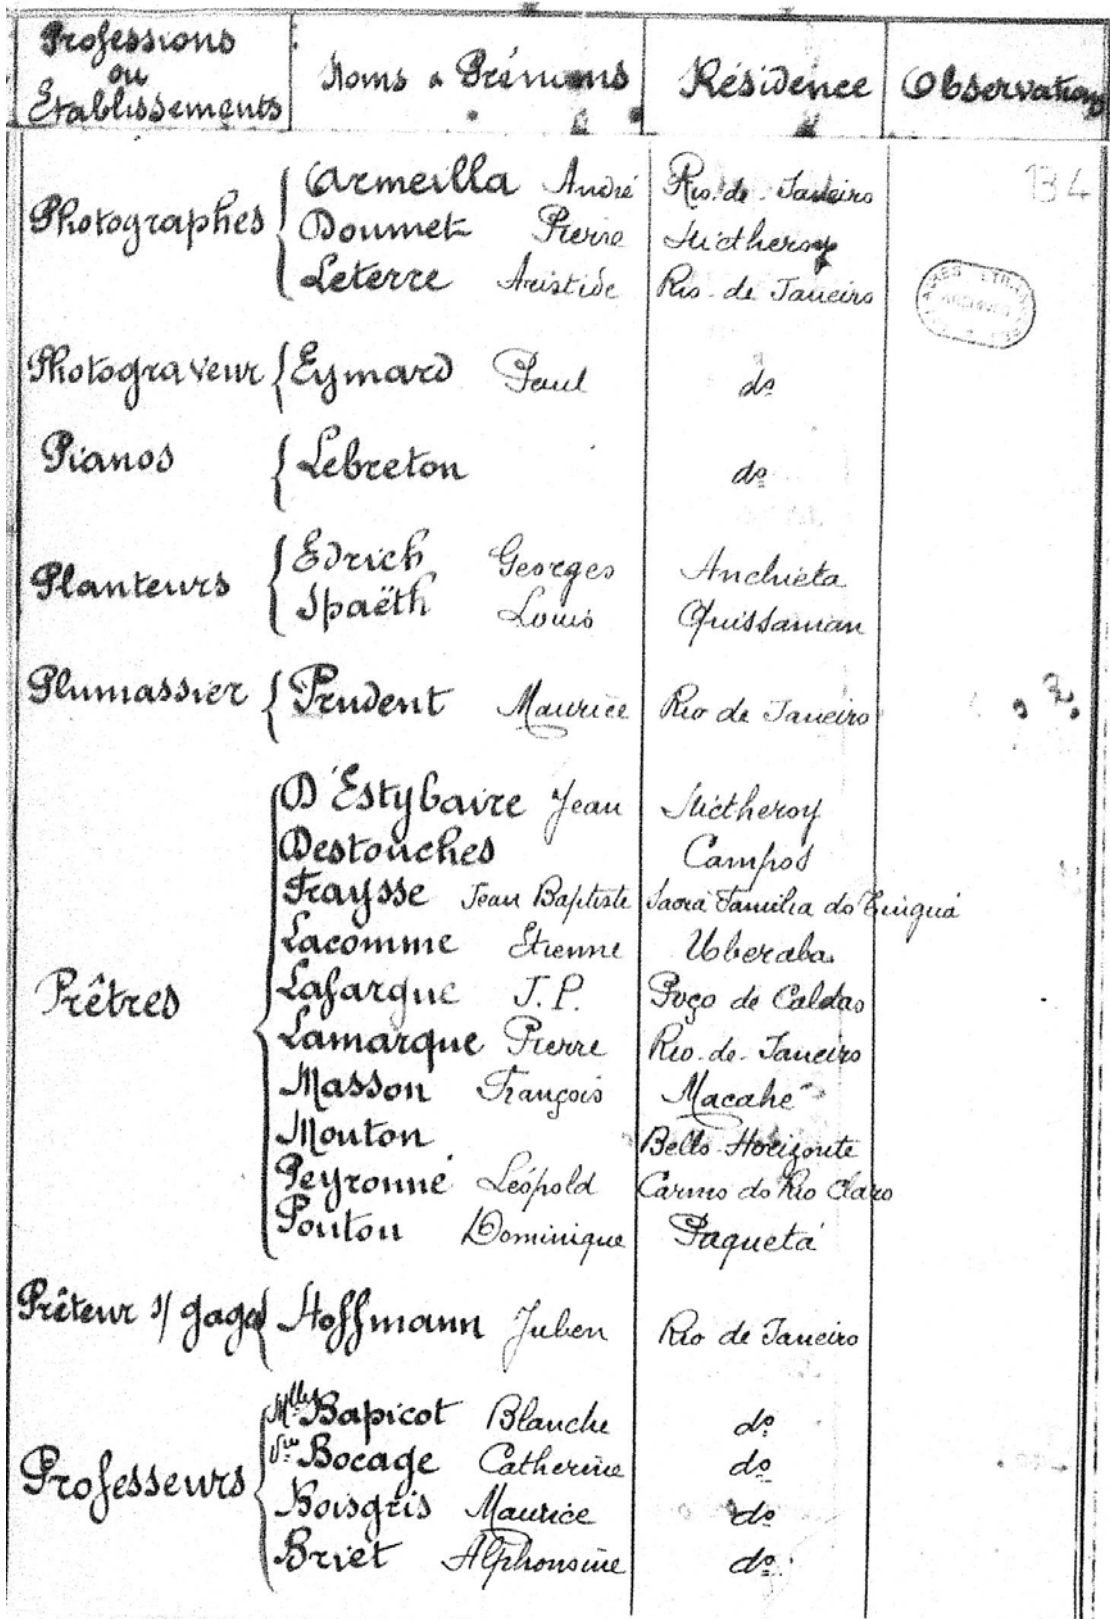 Professions ou Etablissements Noms & Prénoms Résidence Observations
134
Photographes Armeilla André Rio de Janeiro
Doumet Pierre Nictheroy
Leterre Aristide Rio de Janeiro
Photograveur Eymard Paul do
Pianos Lebreton do
Planteurs Edrich Georges Anchieta
Spaëth Louis Quissaman
Plumassier Prudent Maurice Rio de Janeiro
D'Estybaire Jean Nictheroy
Destouches Campos
Fraysse Jean Baptiste Sacra Familia do Tinguá
Lacomme Etienne Uberaba
Prêtres Lafargue J.P. Poço de Caldas
Lamarque Pierre Rio de Janeiro
Masson François Macahe
Mouton Bello Horizonte
Peyronné Léopold Carmo do Rio Claro
Pouton Dominique Paquetá
Prêteur s/ gage Hoffmann Julien Rio de Janeiro
Mlle Bapicot Blanche do
Vve Bocage Catherine do
Professeurs Boisgris Maurice do
Briet Alphonsine do